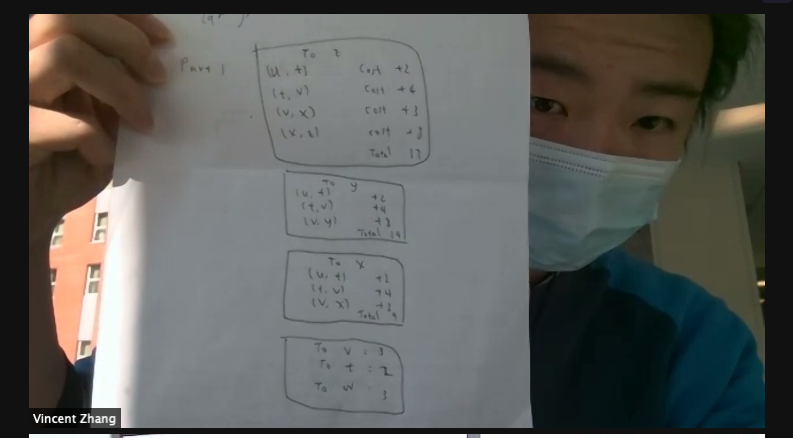 Part 1
To z
(u, t) cost +2
(t, v) cost +4
(v, x) cost +3
(x, z) cost +8
Total 17
To y
(u, t) +2
(t, v) +4
(v, y) +8
Total 14
To x
(u, t) +2
(t, v) +4
(v, x) +3
Total 9
To v : 3
To t : 2
To w : 3
Vincent Zhang